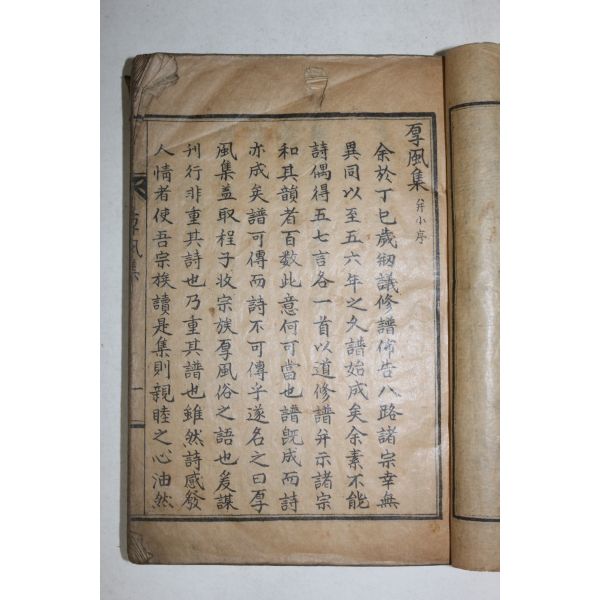 厚風集 幷小序
余於丁巳歲刱議修譜佈告八路諸宗幸無
異同以至五六年之久譜始成矣余素不能
詩偶得五七言各一首以道修譜幷示諸宗
和其韻者百數此意何可當也譜旣成而詩
亦成矣譜可傳而詩不可傳乎遂名之曰厚
風集盖取程子收宗族厚風俗之語也爰謀
刊行非重其詩也乃重其譜也雖然詩感發
人情者使吾宗族讀是集則親睦之心油然
厚風集
一